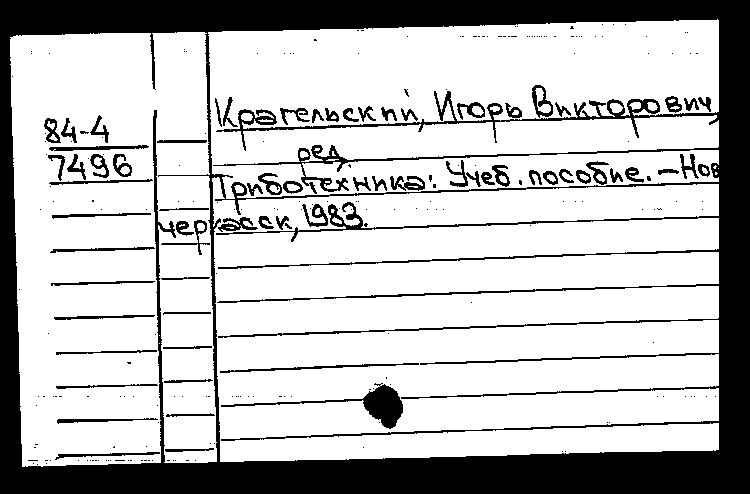 Крагельский, Игорь Викторович,
84-4
ред.
7496
Триботехника: Учеб. пособие. – Нов
черкасск, 1983.